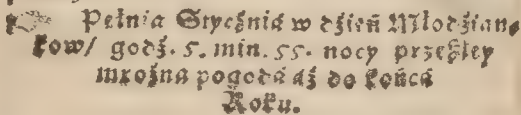 Pełnia Stycżniá w dżień Młodżian⸗
kow/ godż. 5. min. 55. nocy przeßley
mroźna pogodá áż do końcá
Roku.